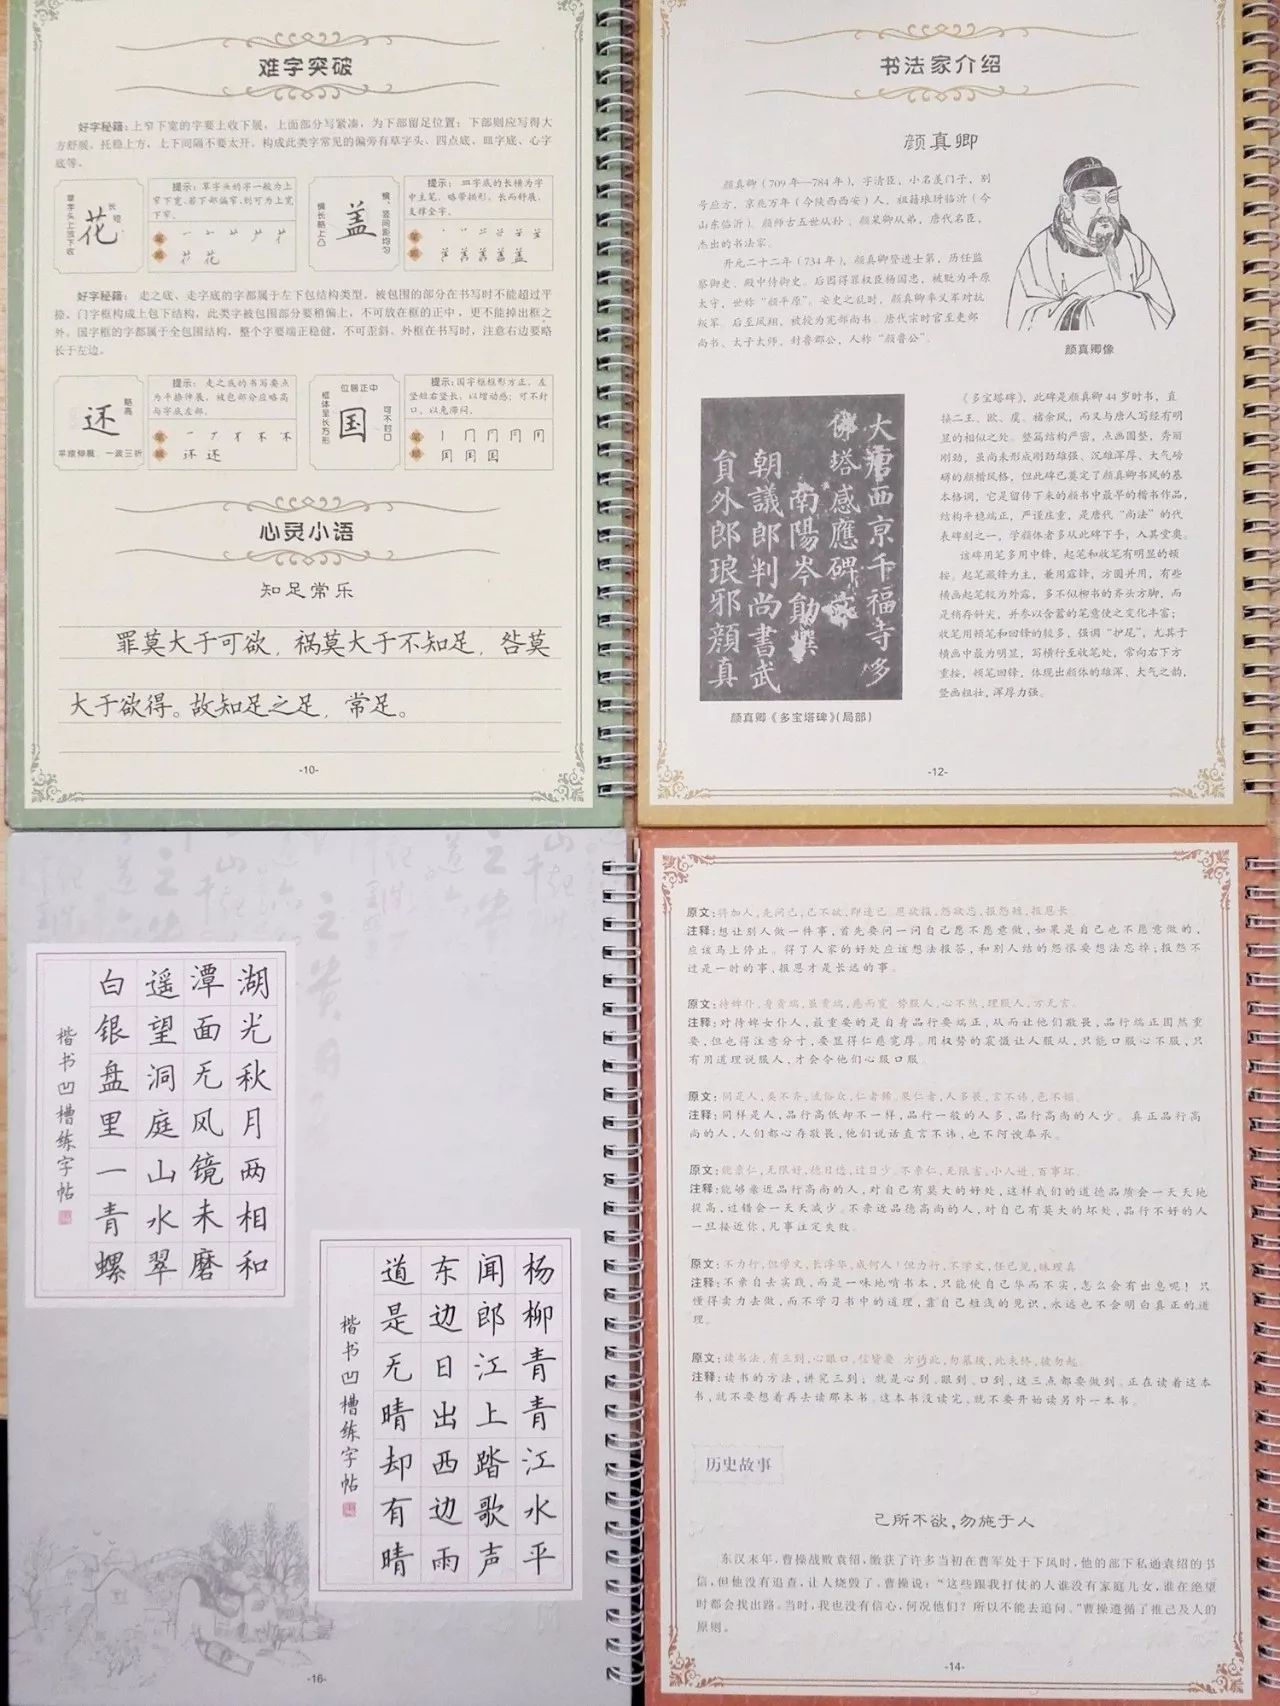 难字突破
好字秘籍：上窄下宽的字要上收下展，上面部分写紧凑，为下部留足位置；下部则应写得大
方舒展，托稳上方，上下间隔不要太开。构成此类字常见的偏旁有草字头、四点底、皿字底、心字
底等。
草字头上放下收
花
长短
提示：草字头的字一般为上
窄下宽，若下部偏窄，则可为上宽
下窄。
笔顺
花
横长略上凸
盖
横、竖间距均匀
提示：皿字底的长横为字
中主笔，略带拱形，长而舒展，
支撑全字。
笔顺
盖
好字秘籍：走之底、走字底的字都属于左下包结构类型，被包围的部分在书写时不能超过平
捺。门字框构成上包下结构，此类字被包围部分要稍偏上，不可放在框的正中，更不能掉出框之
外。国字框的字都属于全包围结构，整个字要端正稳健，不可歪斜，外框在书写时，注意右边要略
长于左边。
还
略高
平捺伸展，一波三折
提示：走之底的书写要点
为平捺伸展，被包部分应略高
与字底左部。
笔顺
还 还
位居正中
框体呈长方形
国
可不封口
提示：国字框框形方正，左
竖短右竖长，以增动感；可不封
口，以免滞闷。
笔顺
国
心灵小语
知足常乐
罪莫大于可欲，祸莫大于不知足，咎莫
大于欲得。故知足之足，常足。
-10-
书法家介绍
颜真卿
颜真卿（709年—784年），字清臣，小名羡门子，别
号应方，京兆万年（今陕西西安）人，祖籍琅玡临沂（今
山东临沂）。颜师古五世从孙、颜杲卿从弟，唐代名臣，
杰出的书法家。
开元二十二年（734年），颜真卿登进士第，历任监
察御史、殿中侍御史。后因得罪权臣杨国忠，被贬为平原
太守，世称“颜平原”。安史之乱时，颜真卿率义军对抗
叛军。后至凤翔，被授为宪部尚书。唐代宗时官至吏部
尚书、太子太师，封鲁郡公，人称“颜鲁公”。
颜真卿像
大唐西京千福寺多
佛塔感應碑
南陽岑勛撰
朝議郎判尚書武
貟外郎琅邪顏真
颜真卿《多宝塔碑》（局部）
《多宝塔碑》，此碑是颜真卿44岁时书，直
接二王、欧、虞、褚余风，而又与唐人写经有明
显的相似之处。整篇结构严密，点画圆整，秀丽
刚劲，虽尚未形成刚劲雄强、沉雄浑厚、大气磅
礴的颜楷风格，但此碑已奠定了颜真卿书风的基
本格调，它是留传下来的颜书中最早的楷书作品，
结构平稳端正，严谨庄重，是唐代“尚法”的代
表碑刻之一，学颜体者多从此碑下手，入其堂奥。
该碑用笔多用中锋，起笔和收笔有明显的顿
按。起笔藏锋为主，兼用露锋，方圆并用，有些
横画起笔较为外露，多不似柳书的齐头方脚，而
是稍存斜尖，并参以含蓄的笔意使之变化丰富；
收笔用顿笔和回锋的较多，强调“护尾”，尤其于
横画中最为明显，写横行至收笔处，常向右下方
重按，顿笔回锋，体现出颜体的雄深、大气之韵，
竖画粗壮，浑厚力强。
-12-
湖光秋月两相和
潭面无风镜未磨
遥望洞庭山水翠
白银盘里一青螺
楷书凹槽练字帖
杨柳青青江水平
闻郎江上踏歌声
东边日出西边雨
道是无晴却有晴
楷书凹槽练字帖
-16-
原文：将加人，先问己，己不欲，即速已。恩欲报，怨欲忘，报怨短，报恩长。
注释：想让别人做一件事，首先要问一问自己愿不愿意做，如果是自己也不愿意做的，
应该马上停止。得了人家的好处应该想法报答，和别人结的怨恨要想法忘掉；报怨不
过是一时的事，报恩才是长远的事。
原文：待婢仆，身贵端，虽贵端，慈而宽。势服人，心不然，理服人，方无言。
注释：对待婢女仆人，最重要的是自身品行要端正，从而让他们敬畏，品行端正固然重
要，但也得注意分寸，要显得仁慈宽厚。用权势的震慑让人服从，只能口服心不服，只
有用道理说服人，才会令他们心服口服。
原文：同是人，类不齐，流俗众，仁者稀。果仁者，人多畏，言不讳，色不媚。
注释：同样是人，品行高低却不一样，品行一般的人多，品行高尚的人少。真正品行高
尚的人，人们都心存敬畏，他们说话直言不讳，也不阿谀奉承。
原文：能亲仁，无限好，德日进，过日少。不亲仁，无限害，小人进，百事坏。
注释：能够亲近品行高尚的人，对自己有莫大的好处，这样我们的道德品质会一天天地
提高，过错会一天天减少。不亲近品德高尚的人，对自己有莫大的坏处，品行不好的人
一旦接近你，凡事注定失败。
原文：不力行，但学文，长浮华，成何人！但力行，不学文，任己见，昧理真。
注释：不亲自去实践，而是一味地啃书本，只能使自己华而不实，怎么会有出息呢！只
懂得卖力去做，而不学习书中的道理，靠自己短浅的见识，永远也不会明白真正的道
理。
原文：读书法，有三到，心眼口，信皆要。方读此，勿慕彼，此未终，彼勿起。
注释：读书的方法，讲究三到；就是心到、眼到、口到，这三点都要做到。正在读着这本
书，就不要想着再去读那本书。这本书没读完，就不要开始读另外一本书。
历史故事
己所不欲，勿施于人
东汉末年，曹操战败袁绍，缴获了许多当初在曹军处于下风时，他的部下私通袁绍的书
信，但他没有追查，让人烧毁了。曹操说：“这些跟我打仗的人谁没有家庭儿女，谁在绝望
时都会找出路。当时，我也没有信心，何况他们？所以不能去追问。”曹操遵循了推己及人的
原则。
-14-